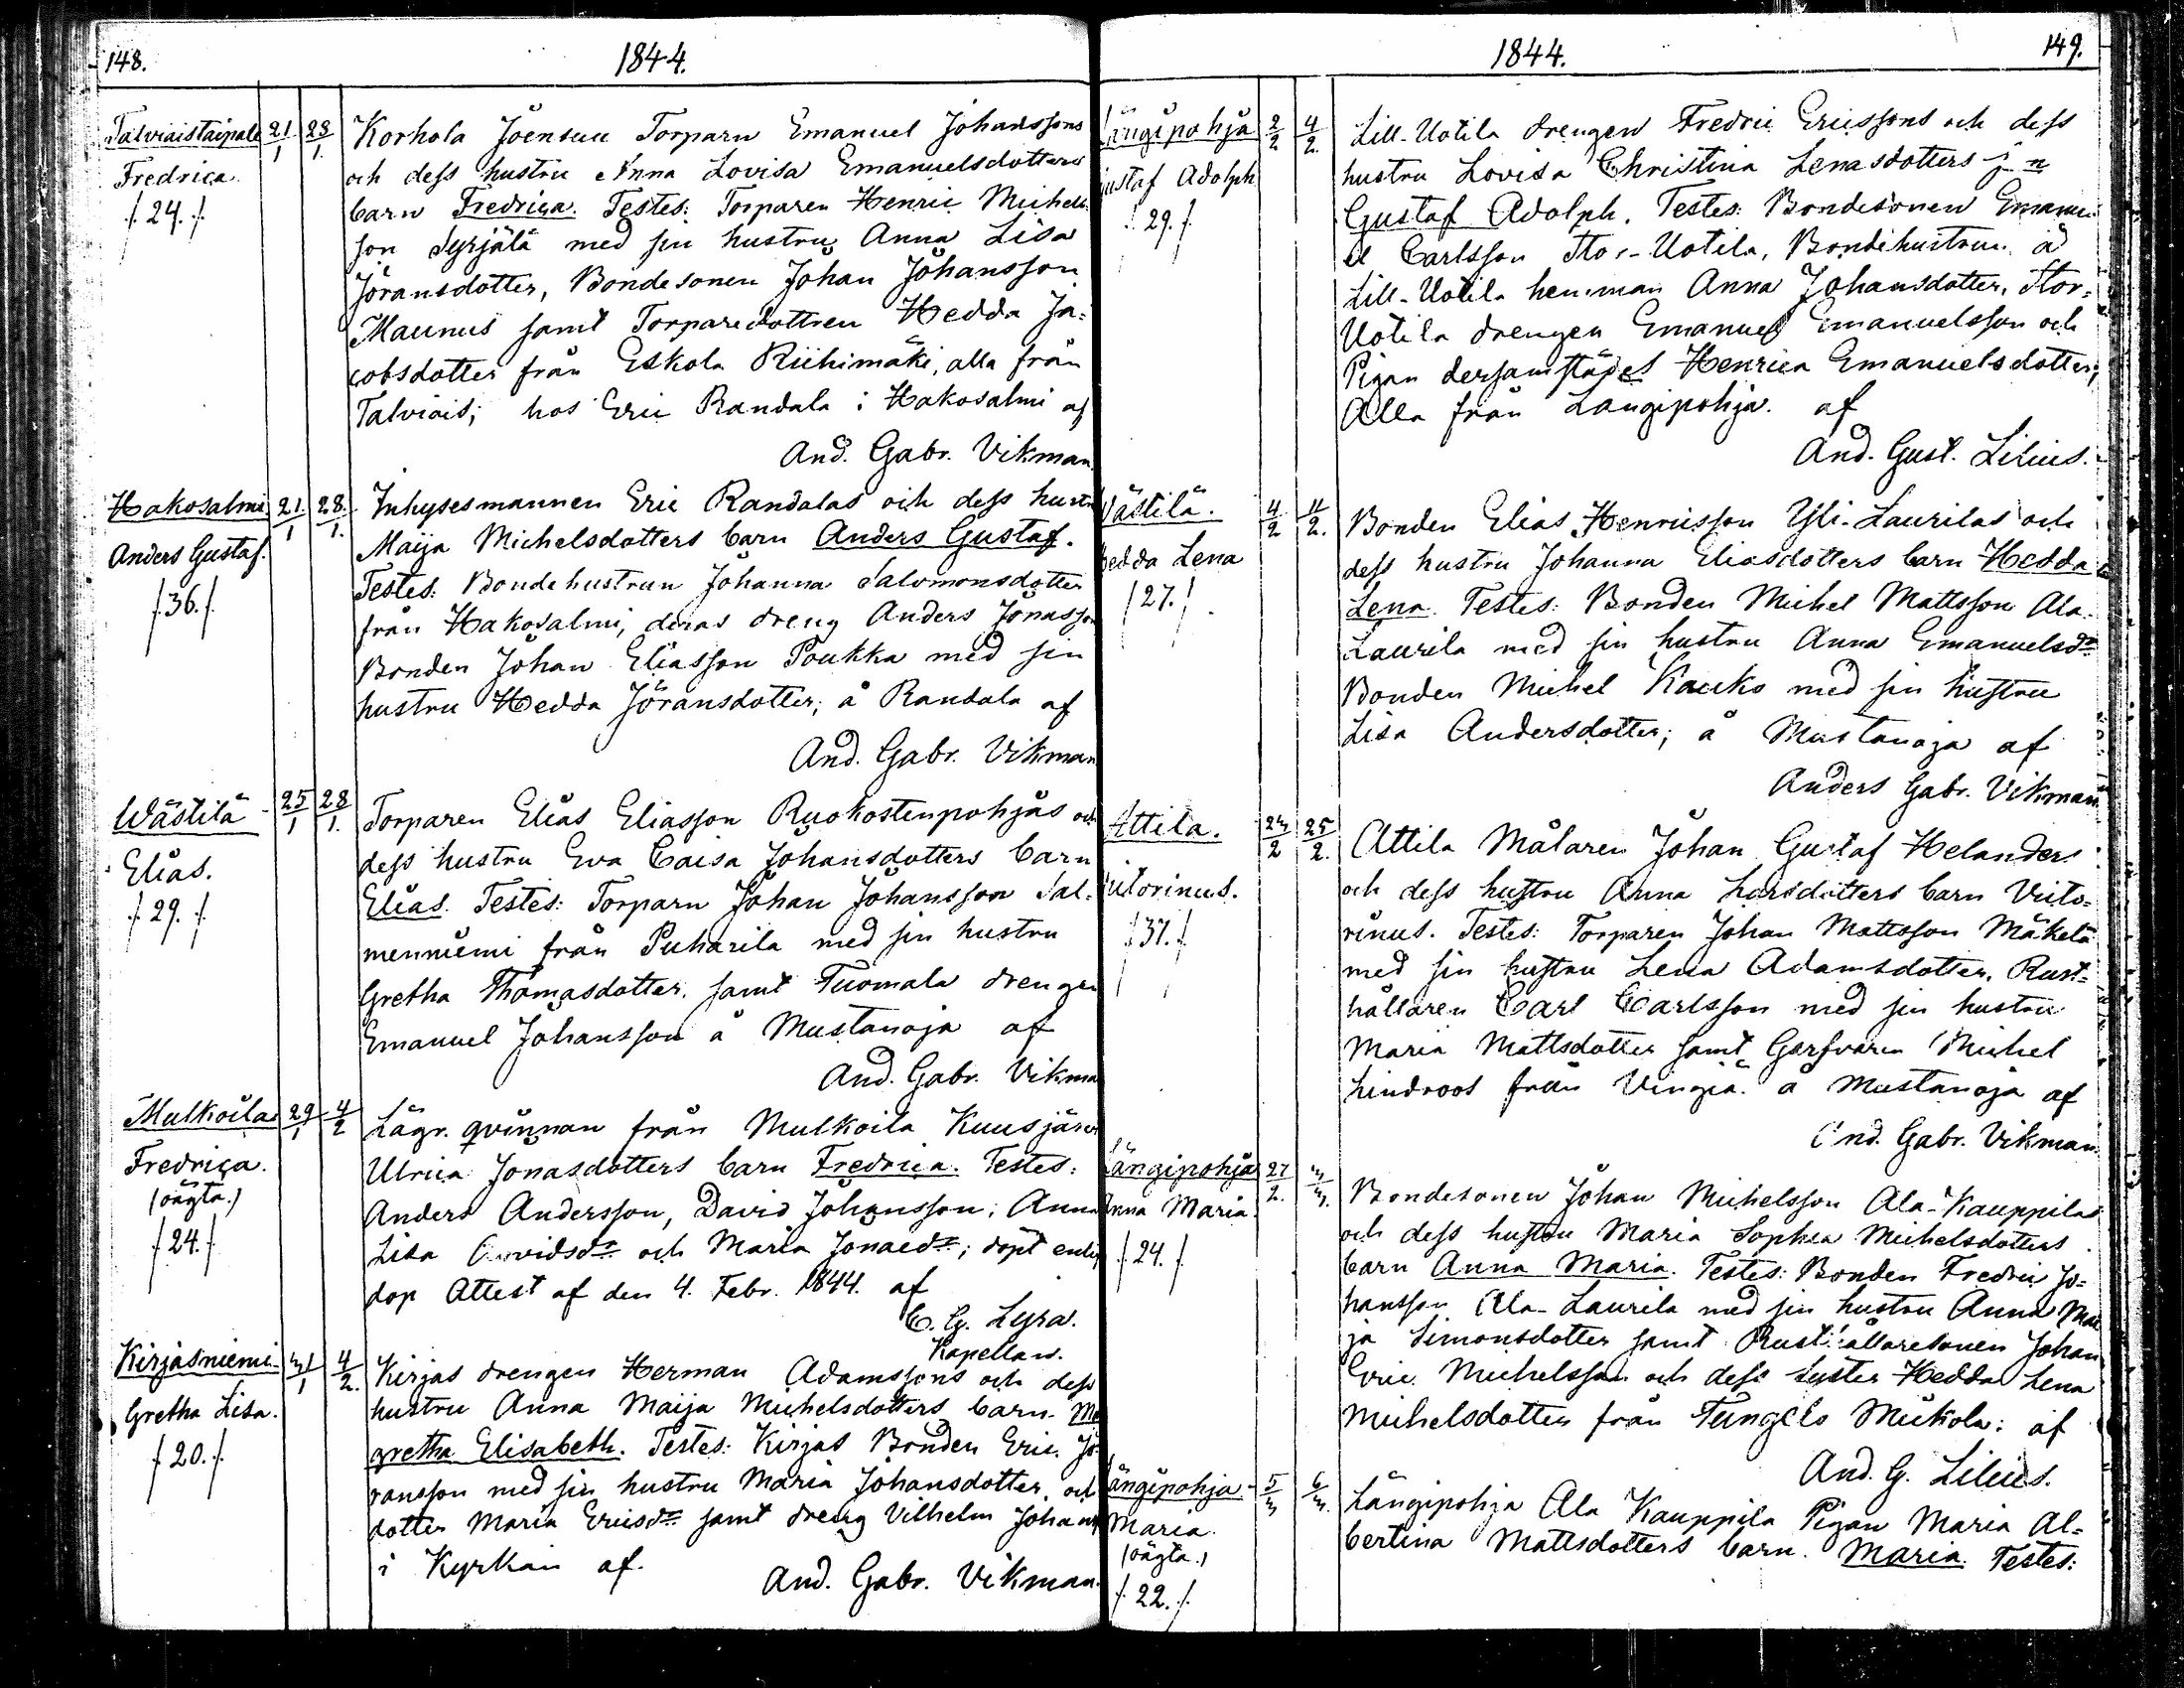 148.
1844.
Talviaistaipale 21/1 28/1.
Fredrica.
/. 24. /.
Korhola Joensuu Torparn Emanuel Johanssons
och dess hustru Anna Lovisa Emanuelsdotters
barn Fredrica. Testes: Torparen Henric Michels
son Syrjälä med sin hustru Anna Lisa
Jöransdotter, Bondesonen Johan Johansson
Maunus samt Torparedottren Hedda Ja=
cobsdotter från Eskola Riihimäki, alla från
Talviais; hos Eric Randala i Hakosalmi af
And. Gabr. Vikman.
Hakosalmi 21/1 28/1.
Anders Gustaf.
/. 36. /.
Inhysesmannen Eric Randalas och dess hustru
Maija Michelsdotters barn Anders Gustaf.
Testes: Bondehustrun Johanna Salomonsdotter
från Hakosalmi, deras dreng Anders Jonasson
Bonden Johan Eliasson Poukka med sin
hustru Hedda Jöransdotter; å Randala af
And. Gabr. Vikman
Wästilä 25/1 28/1.
Elias.
/. 29. /.
Torparen Elias Eliasson Ruokostenpohjas och
dess hustru Eva Caisa Johansdotters barn
Elias. Testes: Torparn Johan Johansson Sal=
menniemi från Puharila med sin hustru
Gretha Thomasdotter, samt Tuomala drengen
Emanuel Johansson å Mustanoja af
And. Gabr. Vikma
Mulkoila 29/1 4/2
Fredrica.
(oägta.)
/. 24. /.
Lägr. qvinnan från Mulkoila Kuusjärvi
Ulrica Jonasdotters barn Fredrica. Testes:
Anders Andersson, David Johansson; Anna
Lisa Arvidsdr och Maria Jonaedr; döpt enligt
dop Attest af den 4. Febr. 1844. af
C. G. Lyra.
Kapellan.
Kirjasniemi 31/1 4/2.
Gretha Lisa.
/. 20. /.
Kirjas drengen Herman Adamssons och dess
hustru Anna Maija Michelsdotters barn Ma
gretha Elisabeth. Testes: Kirjas Bonden Eric Jö
ransson med sin hustru Maria Johansdotter, och
dotter Maria Ericsdr samt dreng Vilhelm Johans
i Kyrkan af.
And. Gabr. Vikman.
1844.
149.
Längipohja 2/2 4/2.
Gustaf Adolph
/. 29. /.
Lill-Uotila drengen Fredric Ericssons och dess
hustru Lovisa Christina Lenasdotters
Gustaf Adolph. Testes: Bondesonen Emanu
el Carlsson Stor-Uotila, Bondehustrun å
Lill-Uotila hemman Anna Johansdotter, Stor=
Uotila drengen Emanuel Emanuelsson och
Pigan dersamstädes Henrica Emanuelsdotter;
Alla från Längipohja. af
And. Gust. Lilius.
Västilä. 4/2 11/2.
Hedda Lena
/ 27. /
Bonden Elias Henricsson Yli-Laurilas och
dess hustru Johanna Eliasdotters barn Hedda
Lena. Testes: Bonden Michel Mattsson Ala-
Laurila med sin hustru Anna Emanuelsdr
Bonden Michel Kauko med sin hustru
Lisa Andersdotter; å Mustanoja af
Anders Gabr. Vikman.
Attila. 24/2 25/2.
Victorinus.
/. 37. /.
Attila Målaren Johan Gustaf Helanders
och dess hustru Anna Larsdotters barn Victo=
rinus. Testes: Torparen Johan Mattsson Mäkelä
med sin hustru Lena Adamsdotter, Rust=
hållaren Carl Carlsson med sin hustru
Maria Mattsdotter samt Garfvaren Michel
Lindroos från Vingiä. å Mustanoja af
And. Gabr. Vikman.
Längipohja 27/2. 3/3.
Anna Maria.
/. 24. /.
Bondesonen Johan Michelsson Ala-Kauppilas
och dess hustru Maria Sophia Michelsdotters
barn Anna Maria. Testes: Bonden Fredric Jo=
hansson Ala-Laurila med sin hustru Anna Mai
ja Simonsdotter samt Rusthållaresonen Johan
Eric Michelsson och dess syster Hedda Lena
Michelsdotter från Tungelo Mickola; af
And. G. Lilius.
Längipohja 5/3 6/3.
Maria.
(oägta.)
/. 22. /.
Längipohja Ala Kauppila Pigan Maria Al=
bertina Mattsdotters barn. Maria. Testes: